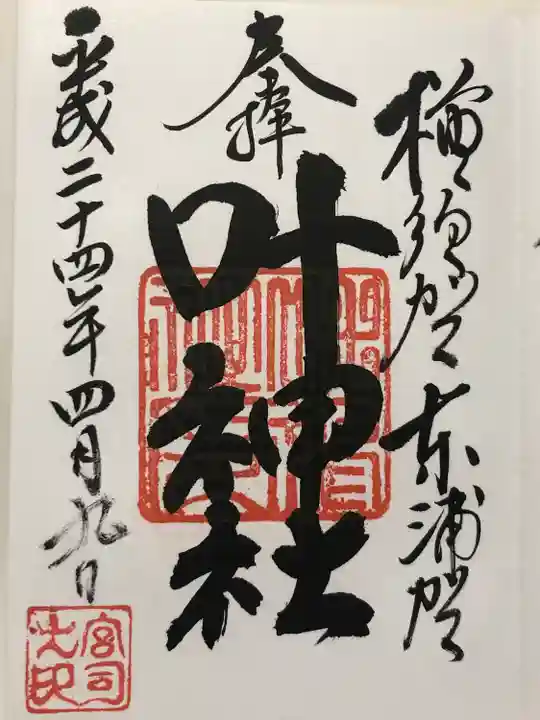 横須賀東浦賀
奉拝
叶神社
平成二十四年四月九日
宮司之印